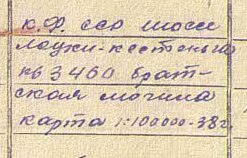 к.Ф. сср шоссе
лоухи-кестеньга
кв 3460 брат-
ская могила
карта 1:100000-38г.